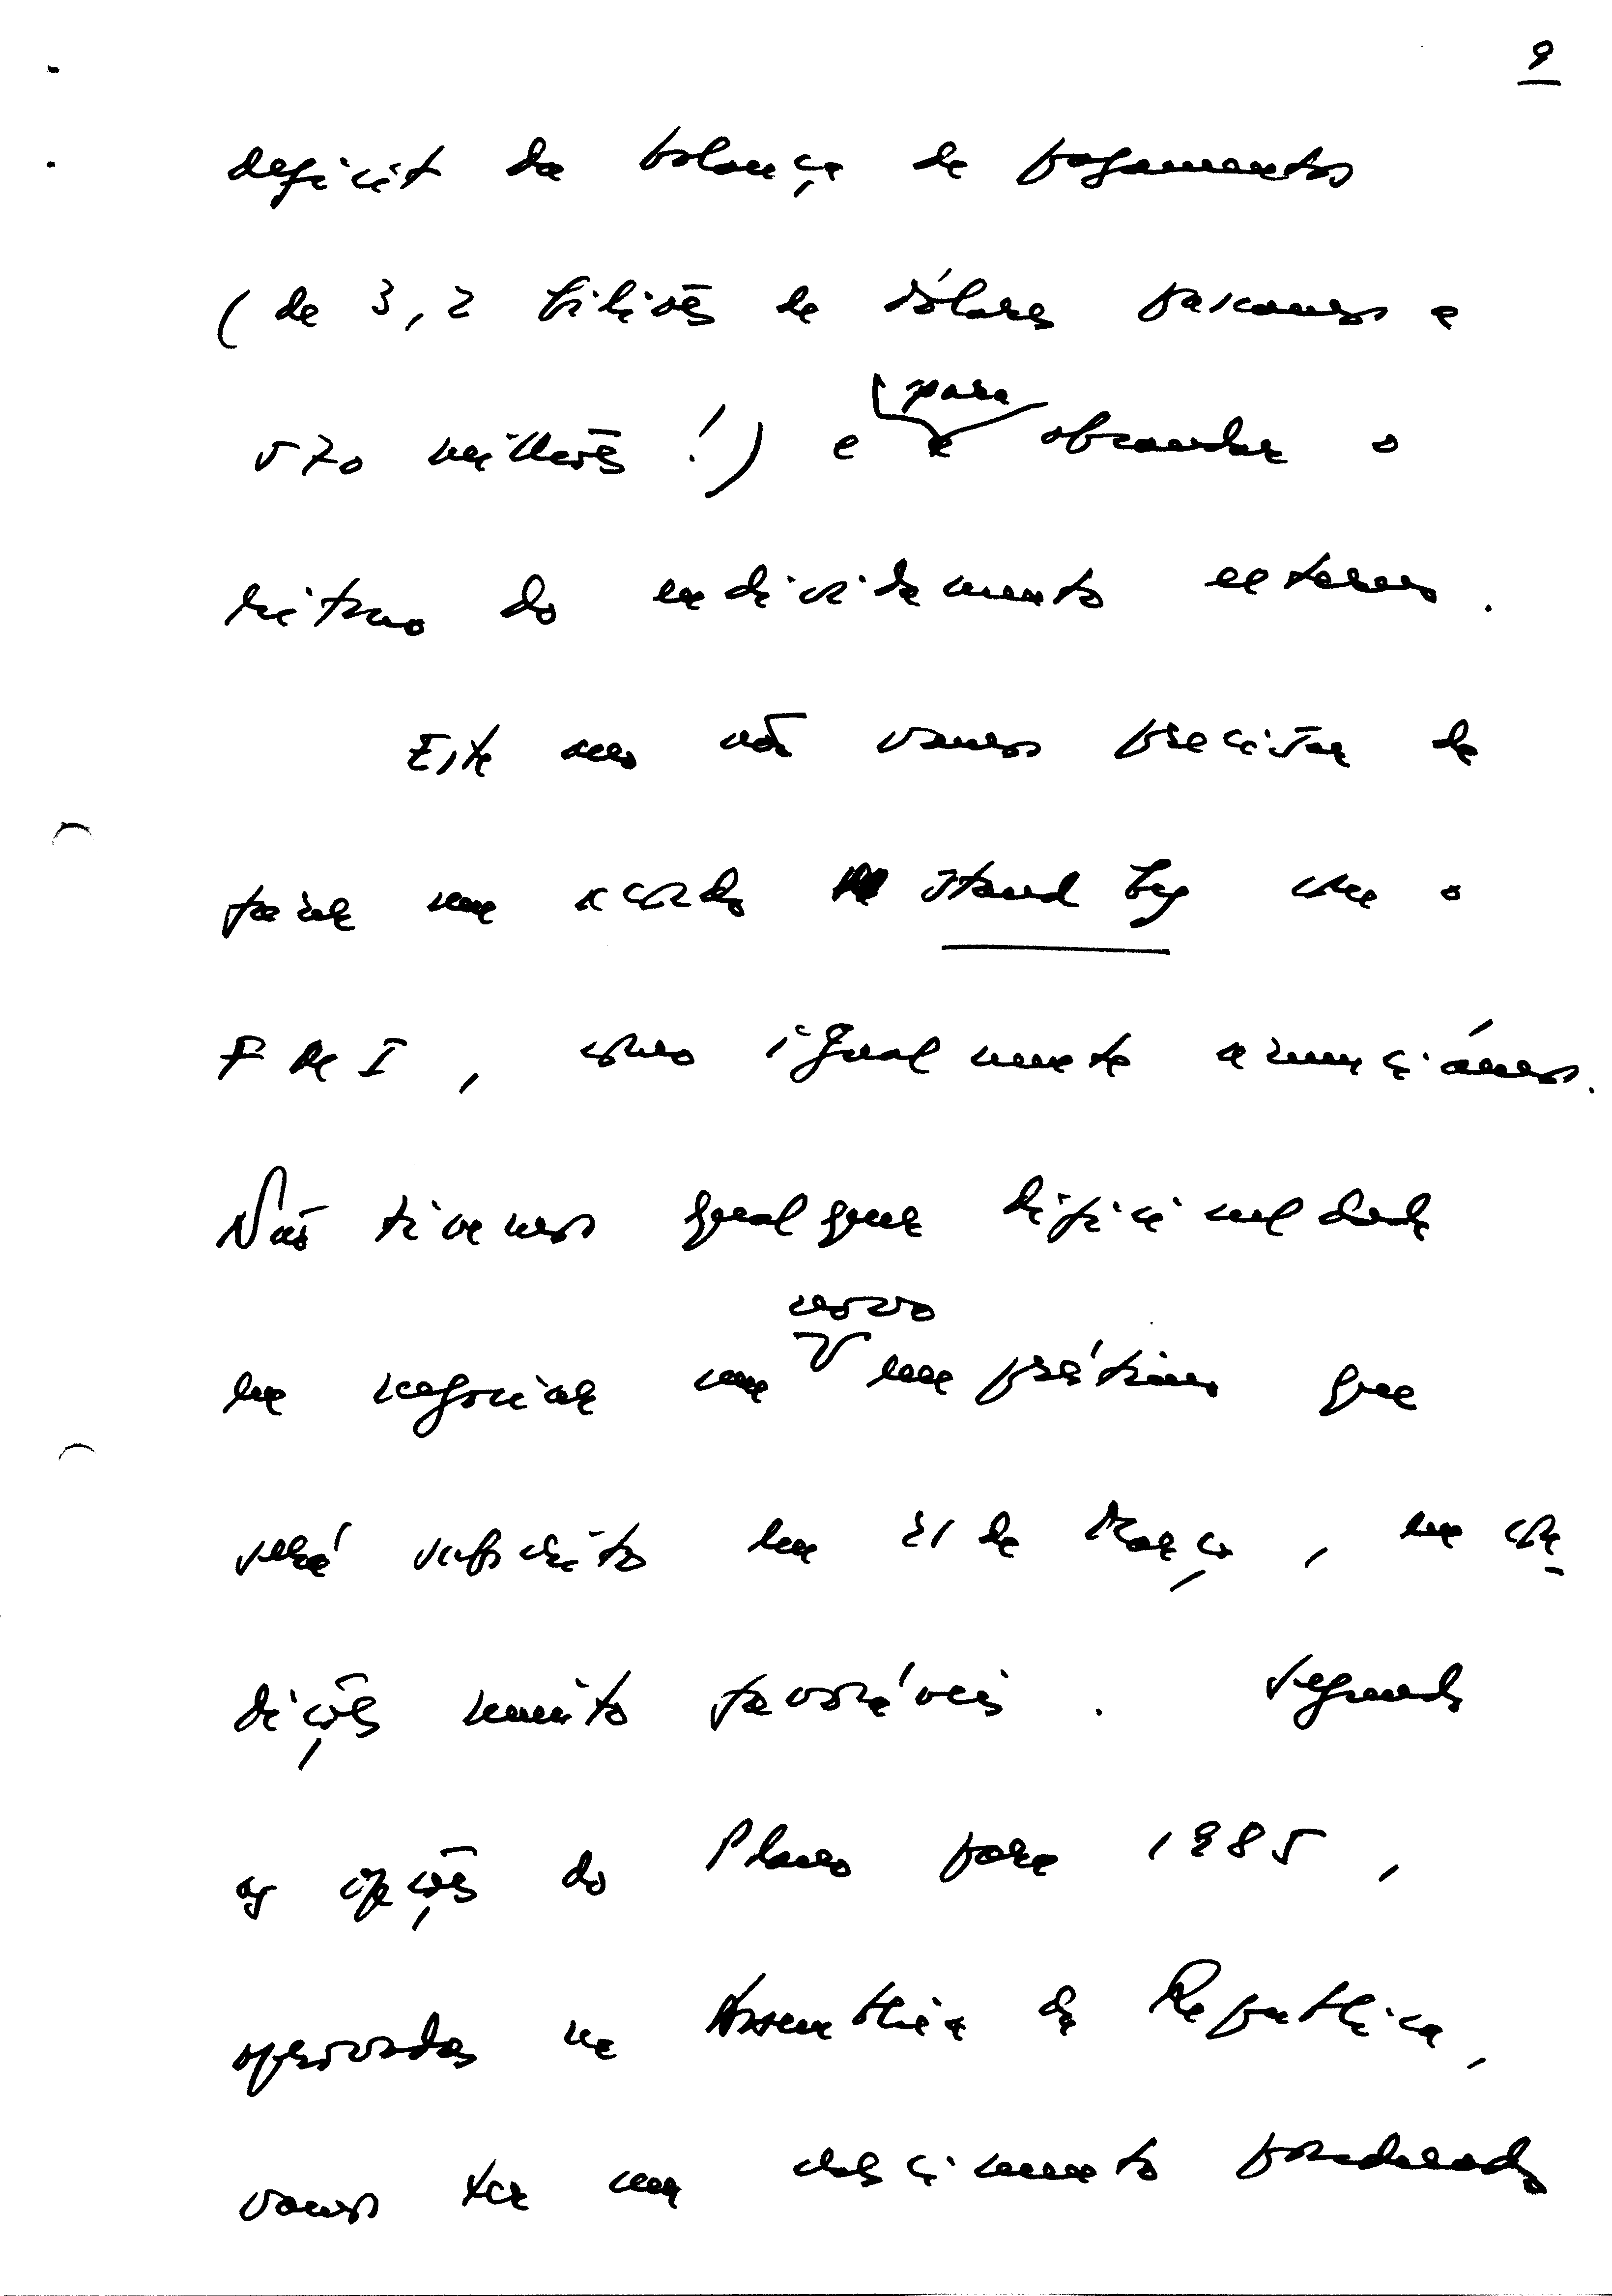 9
deficit da balança de pagamentos
(de 3,2 biliões de dólares passamos a
570 milhões!) e para abrandar o
ritmo do endividamento externo.
Este ano não vamos precisar de
fazer um acordo stand by com o
FMI, como igualmente anunciámos.
Não tivemos qualquer dificuldade
em negociar um novo empréstimo que
será subscrito em 21 de Março, em con-
dições muito favoráveis. Segundo
as opções do Plano para 1985,
aprovadas na Assembleia da República,
vamos ter um crescimento moderado